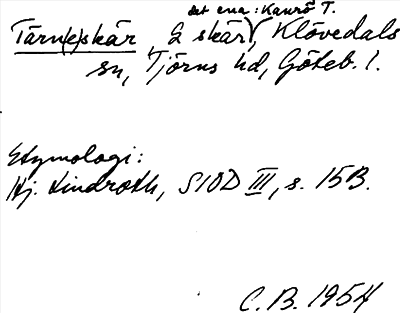 det ena: Kaurö T.
Tärn(e)skär 2 skär, Klövedals
sn, Tjörns hd, Göteb. l.
Etymologi:
Hj. Lindroth, SIOD III, s. 15B.
C.B. 1954